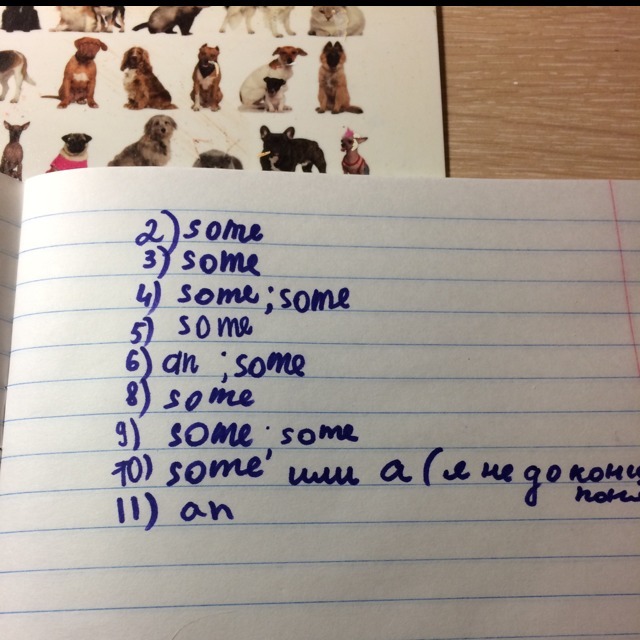 2) some
3) some
4) some; some
5) some
6) an ; some
8) some
9) some; some
10) some или a (я не до
11) an